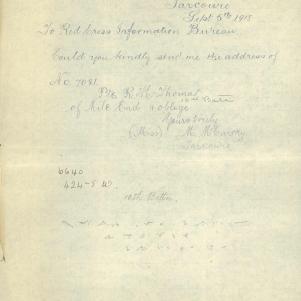 Tarcowie
Sept 5th 1915
To Red Cross Information Bureau
Could you kindly send me the address of
No. 7081
Pte R. H. Thomas
10th Battn
of Mile End & oblige
Yours truly
(Miss) M.
Tarcowie
6640
424-5 W.
10th Battn.